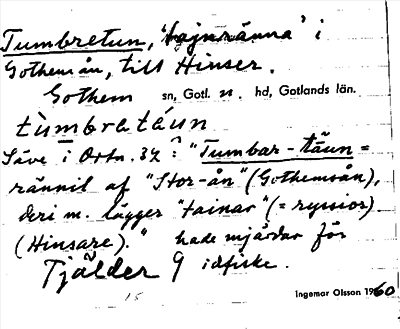 Tumbretun, "tajnränna" i
Gothemån, till Hinser.
Gothem sn, Gotl. n. hd, Gotlands län.
tùmbratáun
Säve i Ortn. 32: "Tumbar-täun =
rännil af "Stor-ån" (Gothemsån),
deri m. lägger "tainar" (= ryssior)
(Hinsare)." hade mjärdar för
Tjälder 9 idfiske.
15
Ingemar Olsson 1960